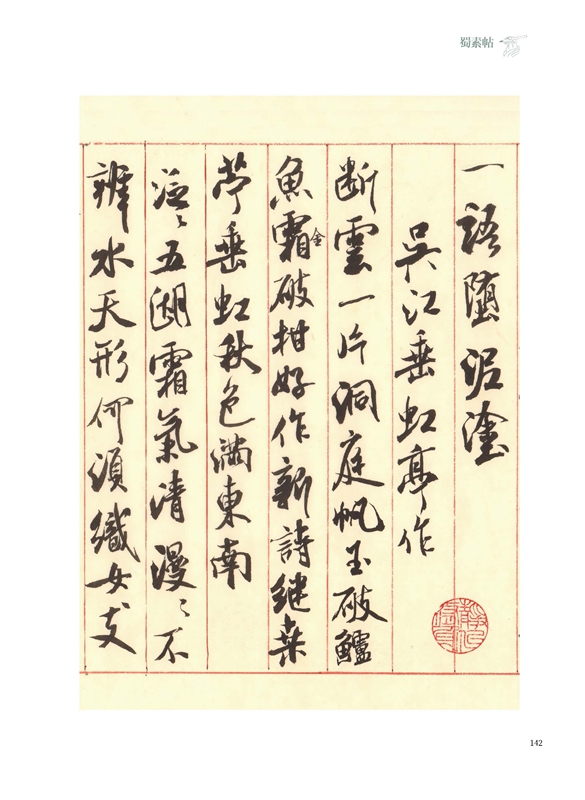 蜀素帖
一語墮泥塗
吳江垂虹亭作
断雲一片洞庭帆玉破鱸
魚霜金破柑好作新詩継桑
苧垂虹秋色滿東南
泛〻五湖霜氣清漫〻不
辨水天形何須織女支
142